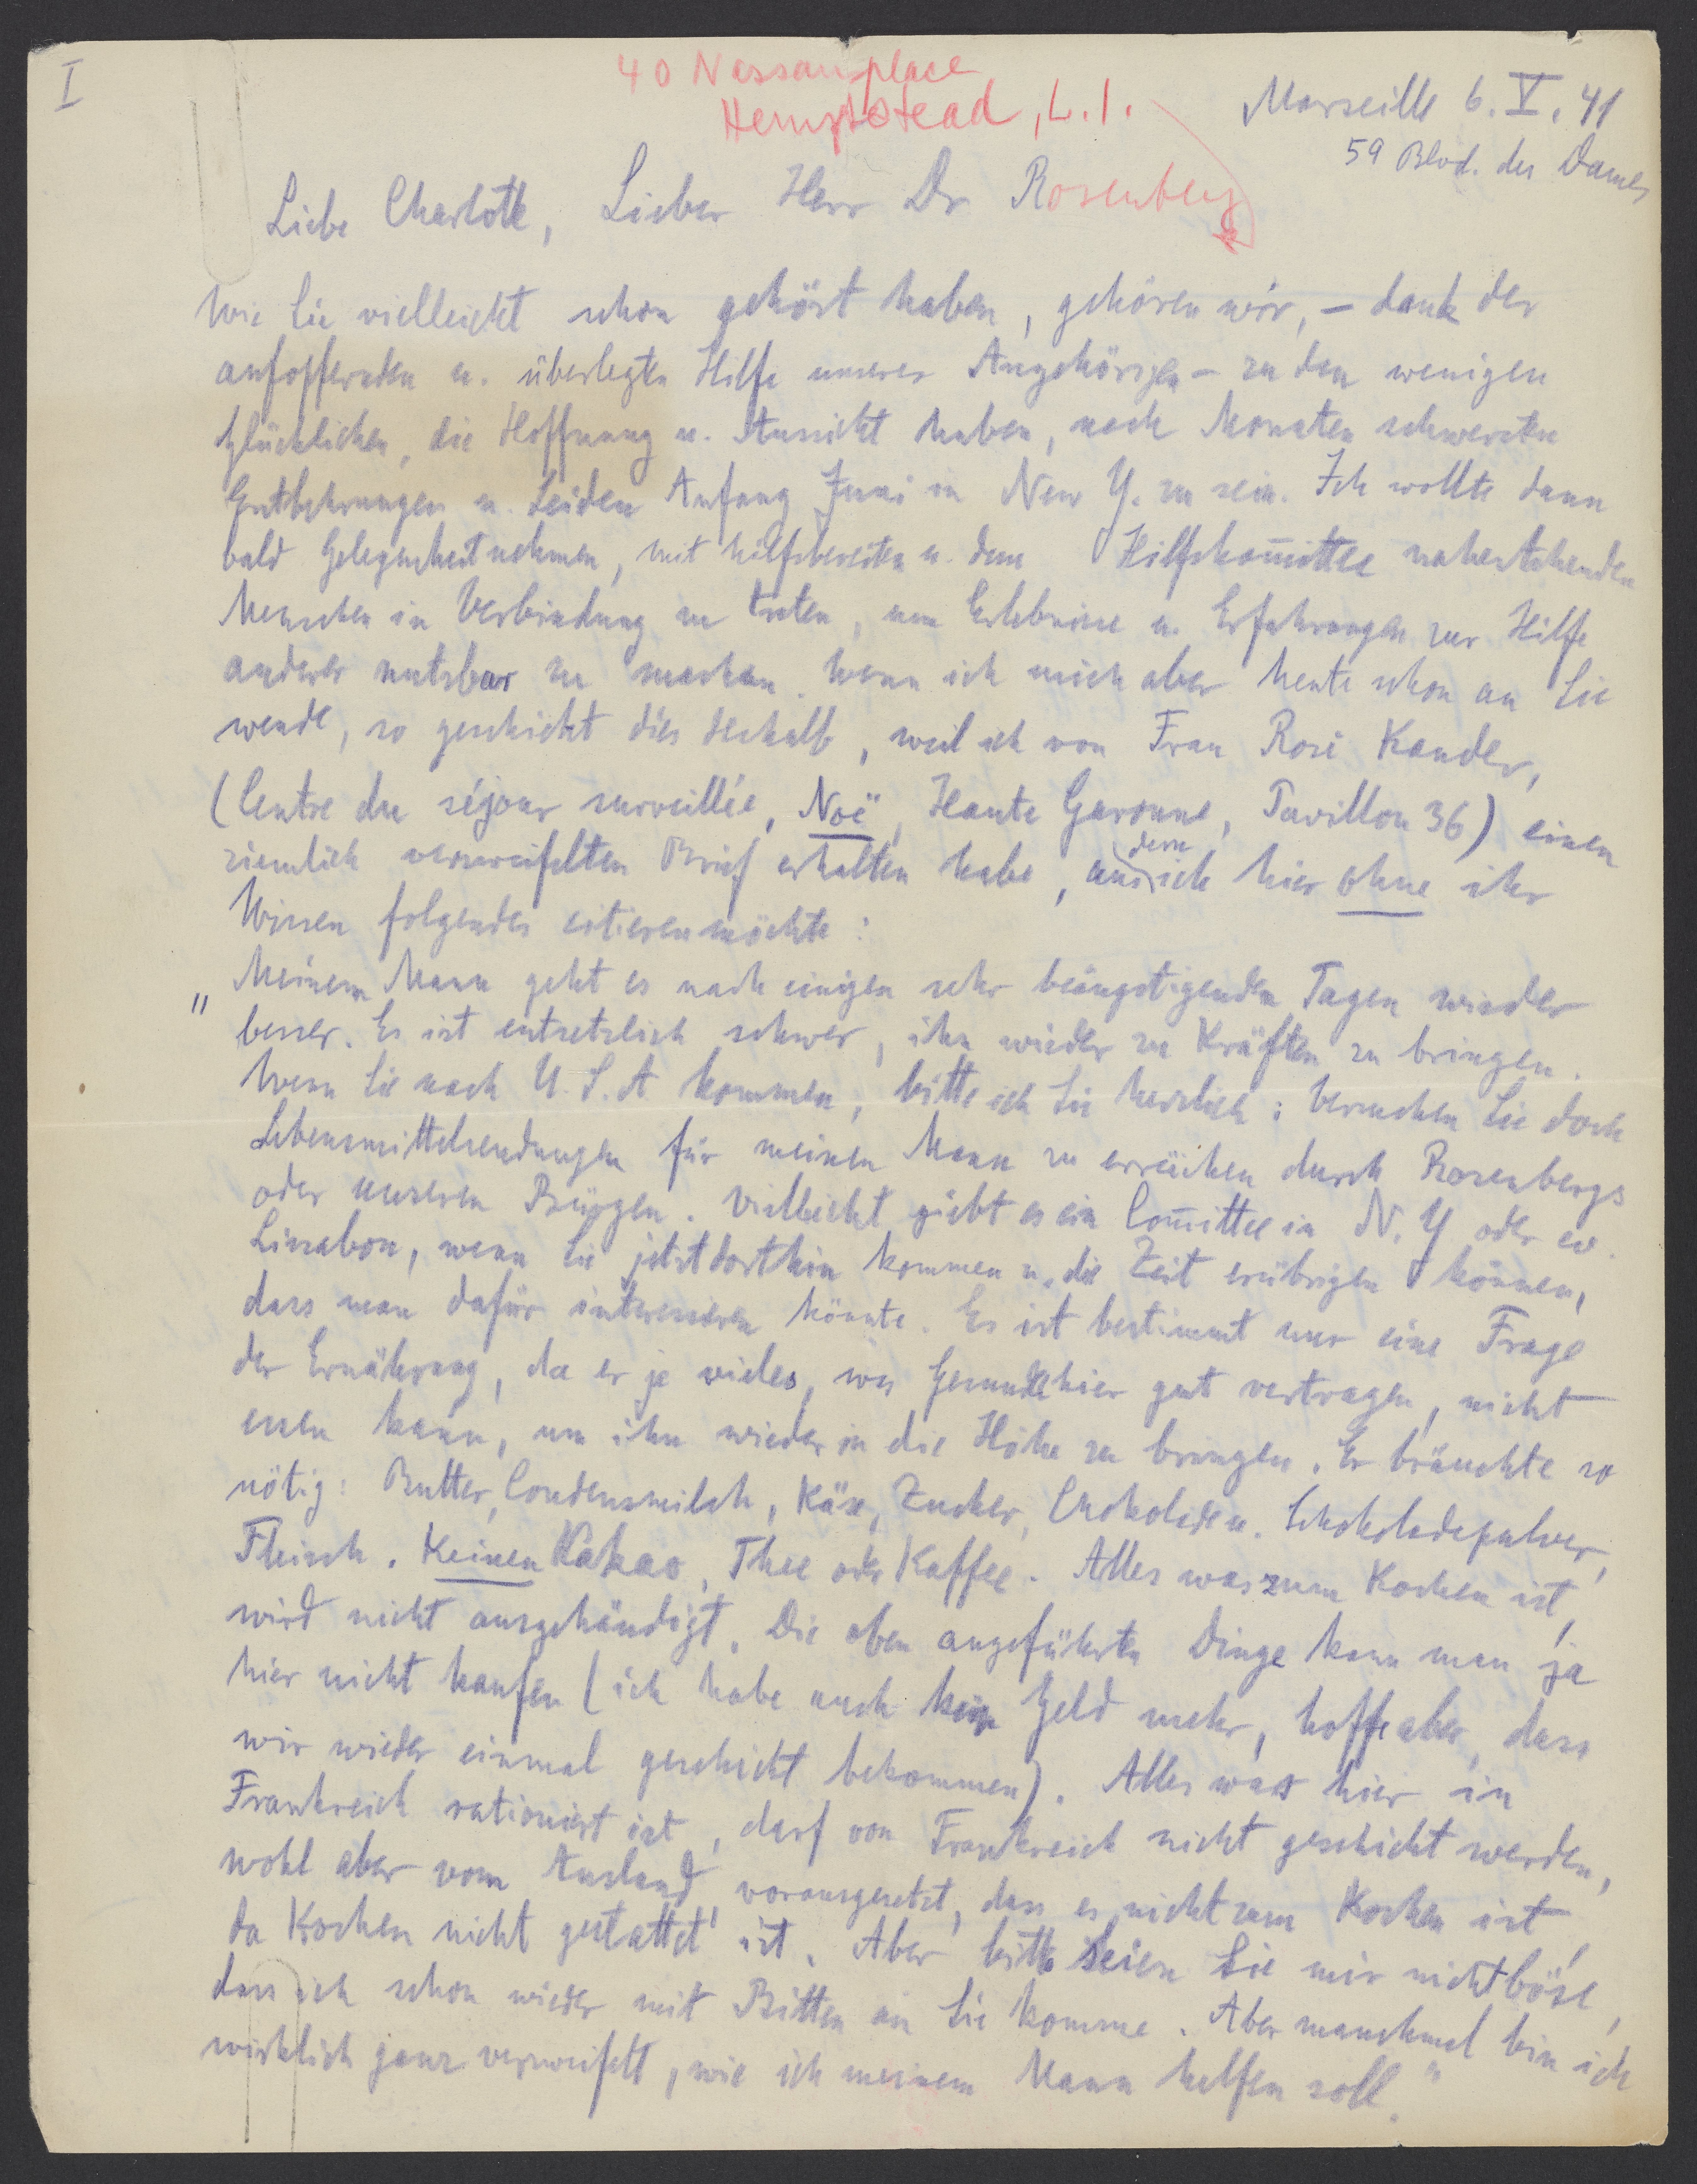 I
40 Nassau place
Hempstead, L.I.
Marseille 6. V. 41
59 Blvd. des Dames
Liebe Charlotte, Lieber Herr Dr Rosenberg
Wie Sie vielleicht schon gehört haben, gehören wir, – dank der
aufopfernden u. überlegten Hilfe unserer Angehörigen – zu den wenigen
Glücklichen, die Hoffnung u. Aussicht haben, nach Monaten schwerster
Entbehrungen u. Leiden Anfang Juni in New Y. zu sein. Ich wollte dann
bald Gelegenheit nehmen, mit hilfsbereiten u. dem Hilfskom̄ittee nahestehenden
Menschen in Verbindung zu treten, um Erlebnisse u. Erfahrungen zur Hilfe
anderer nutzbar zu machen. Wenn ich mich aber heute schon an Sie
wende, so geschieht dies deshalb, weil ich von Frau Rosi Kander,
(Centre du séjour surveillée, Noë, Haute Garonne, Pavillon 36) einen
ziemlich verzweifelten Brief erhalten habe, aus dem ich hier ohne ihr
Wissen folgendes citieren möchte:
"Meinem Mann geht es nach einigen sehr beängstigenden Tagen wieder
besser. Es ist entsetzlich schwer, ihn wieder zu Kräften zu bringen.
Wenn Sie nach U.S.A kommen, bitte ich Sie herzlich: versuchen Sie doch
Lebensmittelsendungen für meinen Mann zu erreichen durch Rosenbergs
oder unseren Bürgen. Vielleicht giebt es ein Com̄ittee in N.Y oder ev.
Lissabon, wenn Sie jetzt dorthin kommen u. die Zeit erübrigen können,
dass man dafür interessieren könnte. Es ist bestimmt nur eine Frage
der Ernährung, da er ja vieles, was Gesunde hier gut vertragen, nicht
essen kann, um ihn wieder in die Höhe zu bringen. Er bräuchte so
nötig: Butter, Condensmilch, Käse, Zucker, Chokolade u. Schokoladepulver,
Fleisch. Keinen Kakao, Thee oder Kaffee. Alles was zum Kochen ist,
wird nicht ausgehändigt. Die oben angeführten Dinge kann man ja
hier nicht kaufen (ich habe auch kein Geld mehr, hoffe aber, dass
wir wieder einmal geschickt bekommen). Alles was hier in
Frankreich rationiert ist, darf von Frankreich nicht geschickt werden,
wohl aber vom Ausland, vorausgesetzt, dass es nicht zum Kochen ist,
da Kochen nicht gestattet ist. Aber bitte seien Sie mir nicht böse,
dass ich schon wieder mit Bitten an Sie komme. Aber manchmal bin ich
wirklich ganz verzweifelt, wie ich meinem Mann helfen soll."